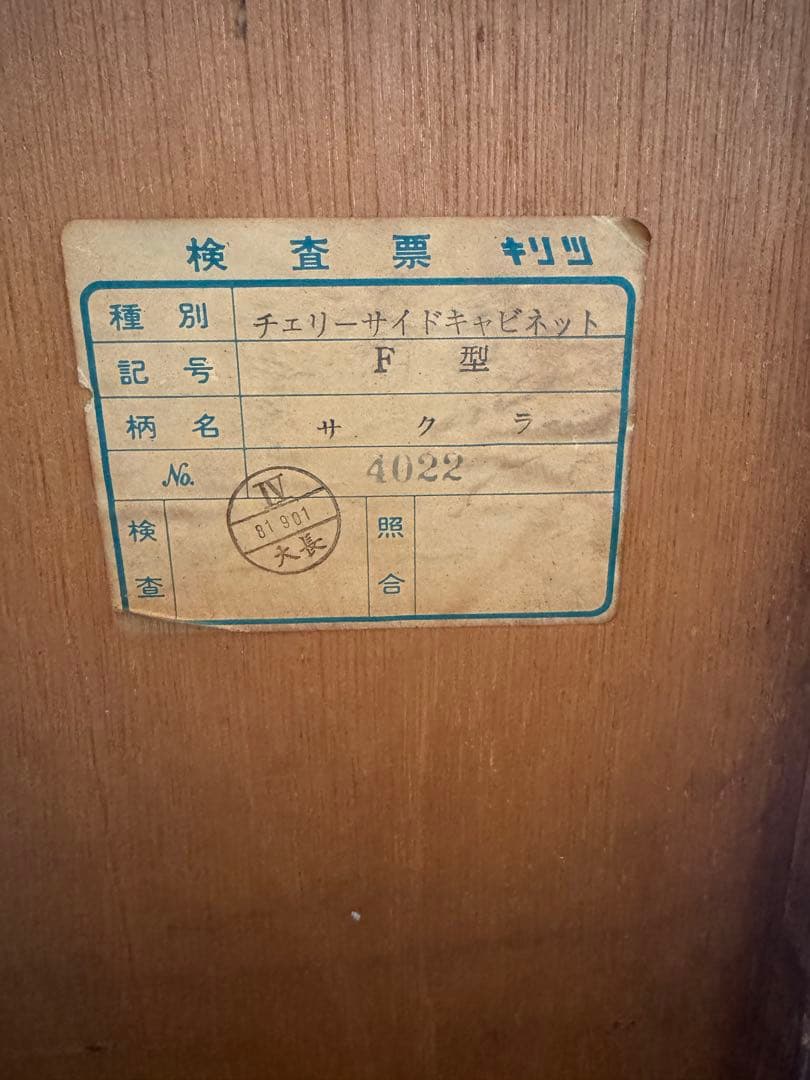 検査票 キリツ
種別 チェリーサイドキャビネット
記号 F型
柄名 サクラ
No. 4022
検査
IV
81 9 01
大長
照合